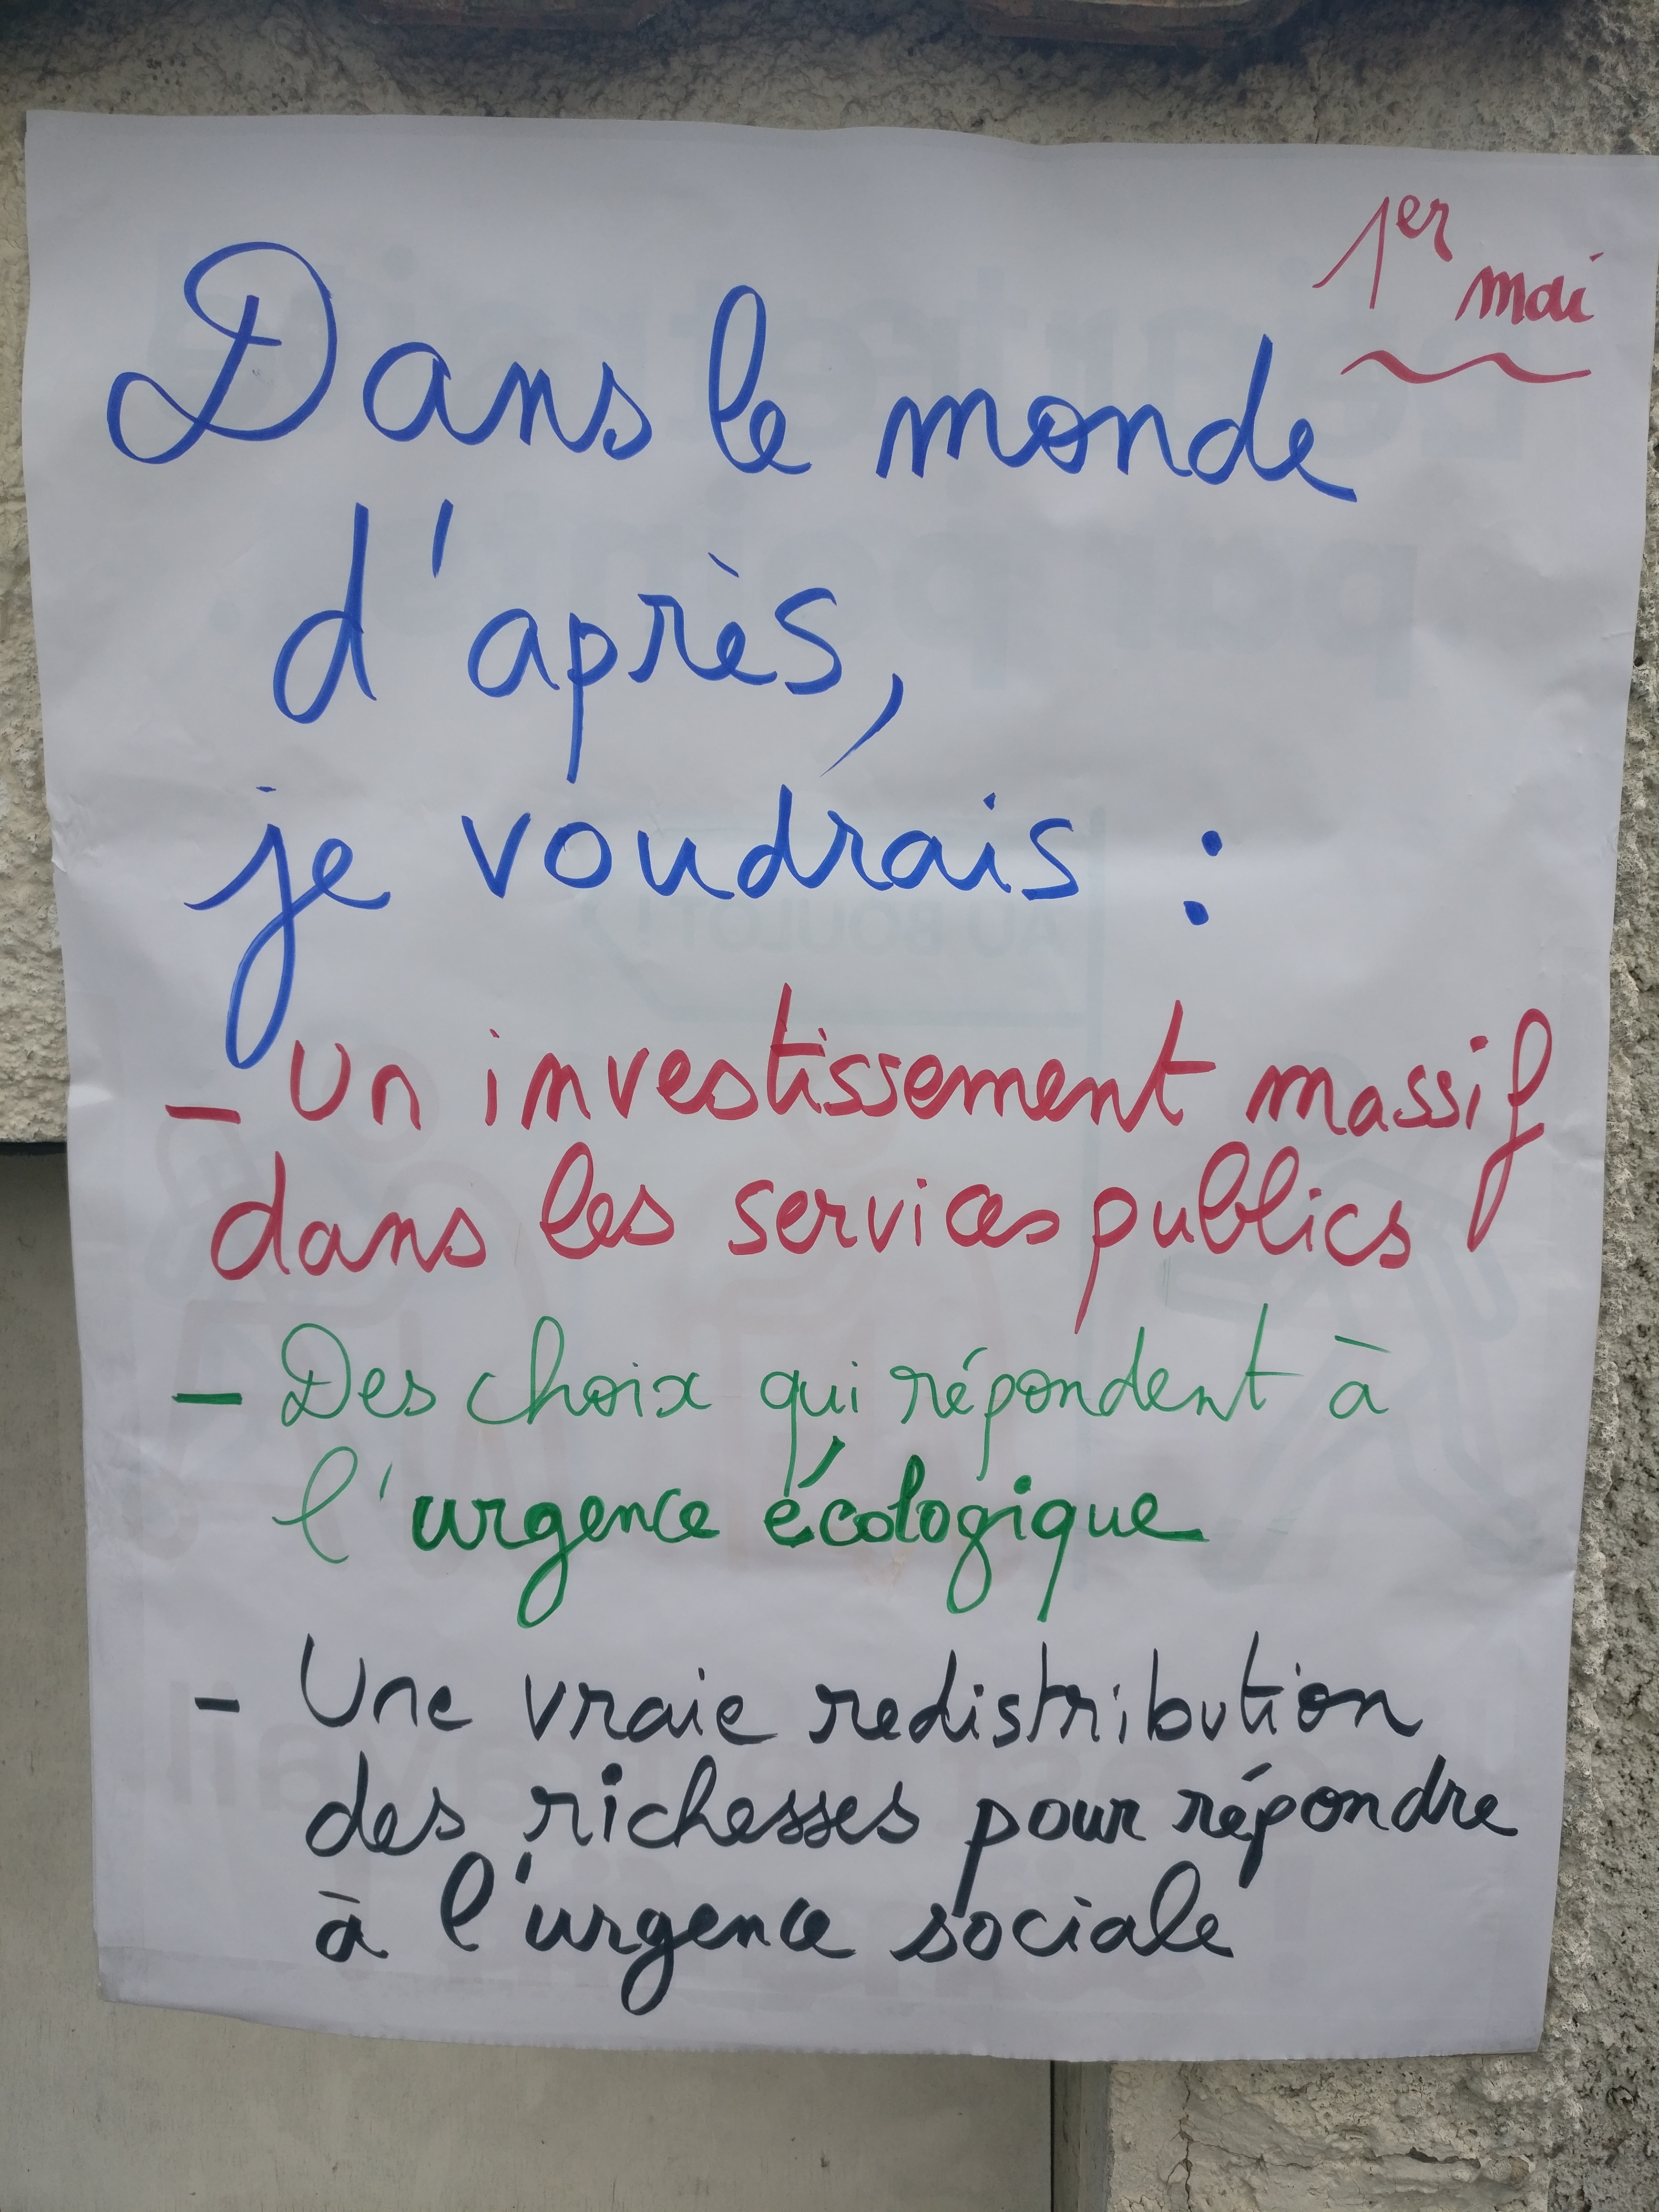 1er mai
Dans le monde
d'après,
je voudrais :
- Un investissement massif
dans les services publics
- Des choix qui répondent à
l'urgence écologique
- Une vraie redistribution
des richesses pour répondre
à l'urgence sociale
AU BOULOT !